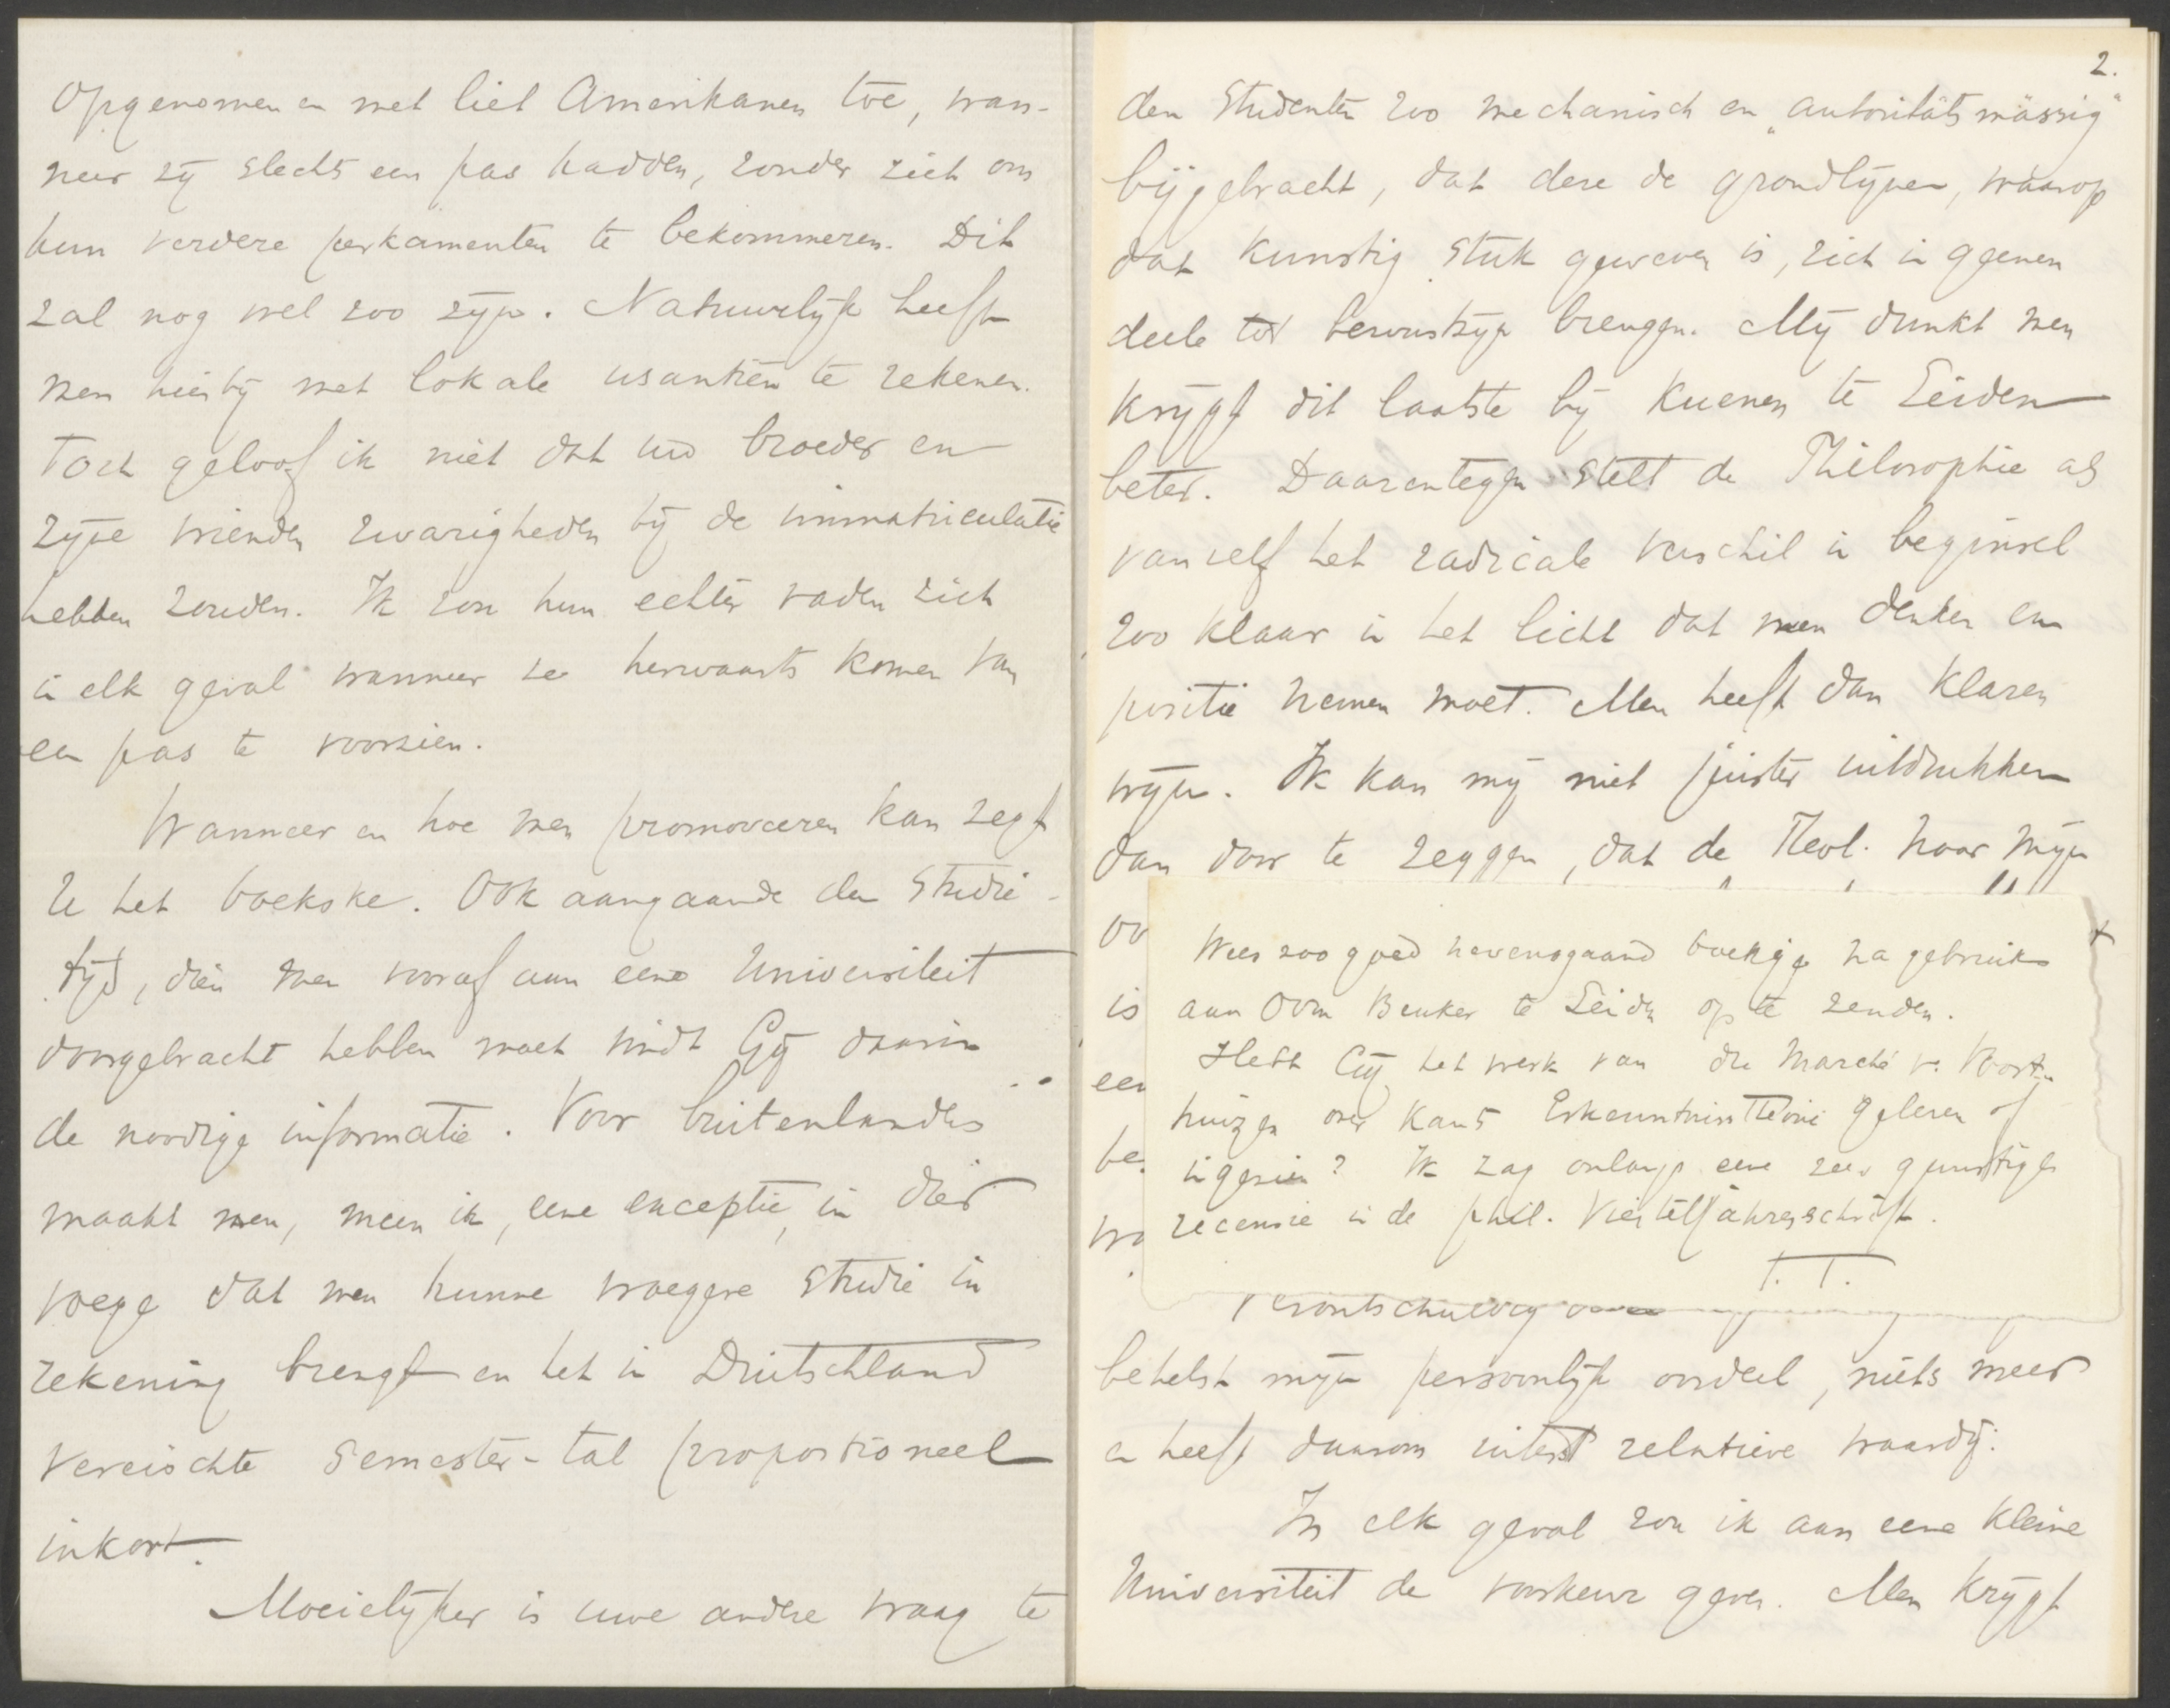 Opgenomen en met liet Amerikanen toe, wan-
neer zij slechts een pas hadden, zonder zich om
hun verdere perkamenten te bekommeren. Dit
zal nog wel zoo zijn. Natuurlijk heeft
men hierbij met lokale usantiën te rekenen.
Toch geloof ik niet dat uw broeder en
zijne vrienden zwarigheden bij de immatriculatie
hebben zouden. Ik zou hun echter raden zich
in elk geval wanneer ze herwaarts komen van
een pas te voorzien.
Wanneer en hoe men promoveeren kan zegt
U het boekske. Ook aangaande den Studie-
tijd, dien men vooraf aan eene Universiteit
doorgebracht hebben moet vindt Gij daarin
de noodige informatie. Voor buitenlanders
maakt men, meen ik, eene exceptie, in dier
voege dat men hunne vroegere studie in
rekening brengt en het in Duitschland
vereischte Semester-tal proportioneel
inkort.
Moeielijker is uwe andere vraag te
2.
den Studenten zoo mechanisch en „autoritätsmässig"
bijgebracht, dat deze de grondlijnen, waarop
dat kunstig stuk geweven is, zich in geenen
deele tot bewustzijn brengen. Mij dunkt men
krijgt dit laatste bij Kuenen te Leiden
beter. Daarentegen stelt de Philosophie als
van zelf het radicale verschil in beginsel
zoo klaar in het licht dat men denken en
positie nemen moet. Men heeft dan klaren
wijn. Ik kan mij niet juister uitdrukken
dan door te zeggen, dat de Theol. naar mijn
oo
is
een
be
wa
Wees zoo goed nevensgaand boekje na gebruik
aan Oom Beuker te Leiden op te zenden.
Hebt Gij het werk van du Marché v. Voort-
huizen over Kants Erkenntnisstheorie gelezen of
ingezien? Ik zag onlangs eene zeer gunstige
recensie in de phil. Vierteljahrsschrift.
T.T.
behelst mijn persoonlijk oordeel, niets meer
en heeft daarom uiterst relatieve waardij.
In elk geval zou ik aan eene kleine
Universiteit de voorkeur geven. Men krijgt